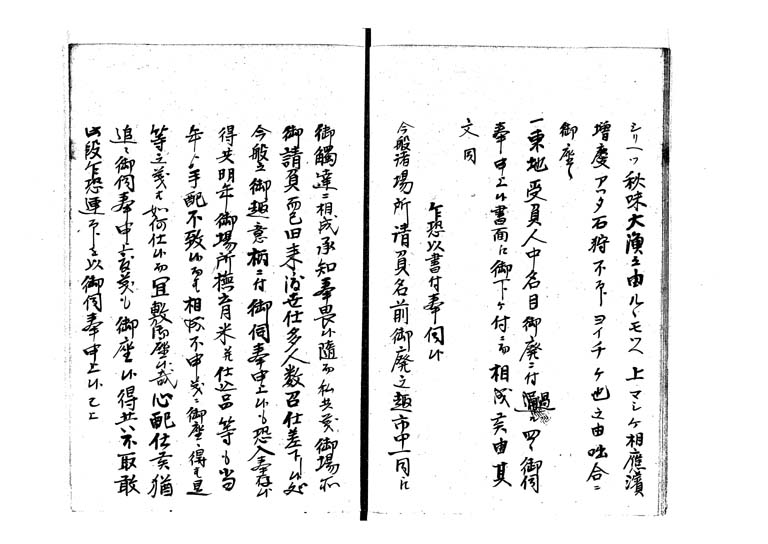 シリヘツ秋味大漁之由ルヽモツヘ上マシケ相應濱
増慶アツタ石狩不Ⲻヨイチケ也之由咄合ニ
御座候
一東地受負人中名目御廃ニ付過ル四日御伺
奉申上候書面ニ御下ケ付ニ而相成候由其
文同
乍恐以書付奉伺候
今般諸場所請負名前御廃之趣市中一同ニ
御觸達ニ相成承知奉畏候随而私共義御場所
御請負而已旧来渡世仕多人数召仕差下し候処
今般之御趣意柄ニ付御伺奉申上候も恐入奉存候
得共明年御場所撫育米并仕込品等も当
年より手配不致候而者相成不申義ニ御座候得者是
等之義者如何仕候而宜敷御座候哉心配仕候猶
追々御伺奉申上候義も御座候得共不取敢
此段乍恐連印之以御伺奉申上候已上